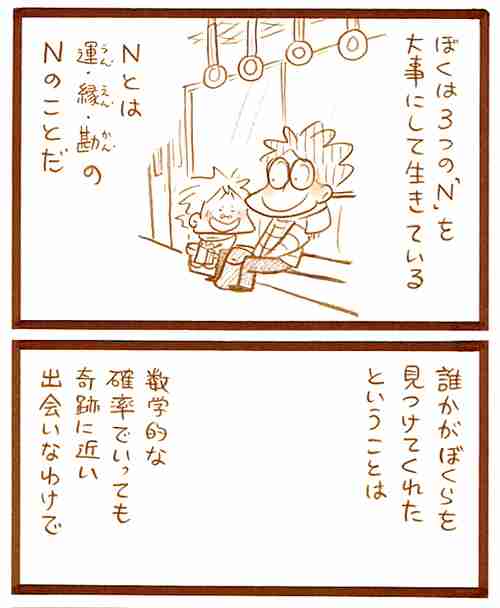 ぼくは3つの「N」を
大事にして生きている
Nとは
運・縁・勘の
うん えん かん
Nのことだ
誰かがぼくらを
見つけてくれた
ということは
数学的な
確率でいっても
奇跡に近い
出会いなわけで